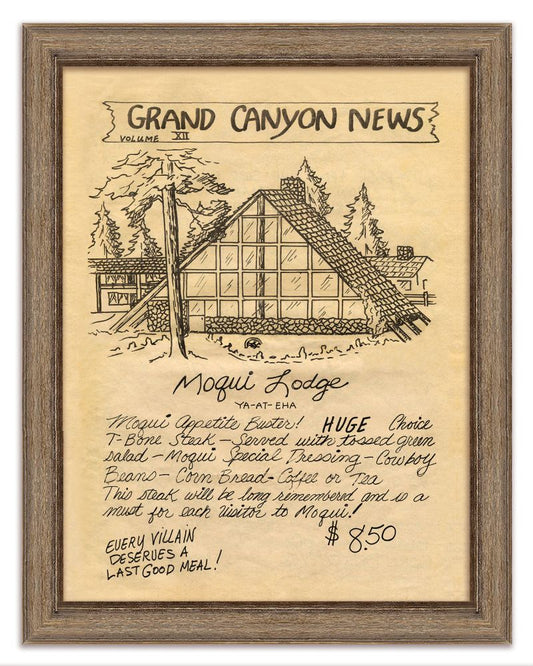 GRAND CANYON NEWS
VOLUME XII
Moqui Lodge
YA-AT-EHA
Moqui Appetite Buster! HUGE Choice
T-Bone Steak - Served with tossed green
salad - Moqui Special Dressing - Cowboy
Beans - Corn Bread - Coffee or Tea
This steak will be long remembered and is a
must for each Visitor to Moqui!
$ 8.50
EVERY VILLAIN
DESERVES A
LAST GOOD MEAL!